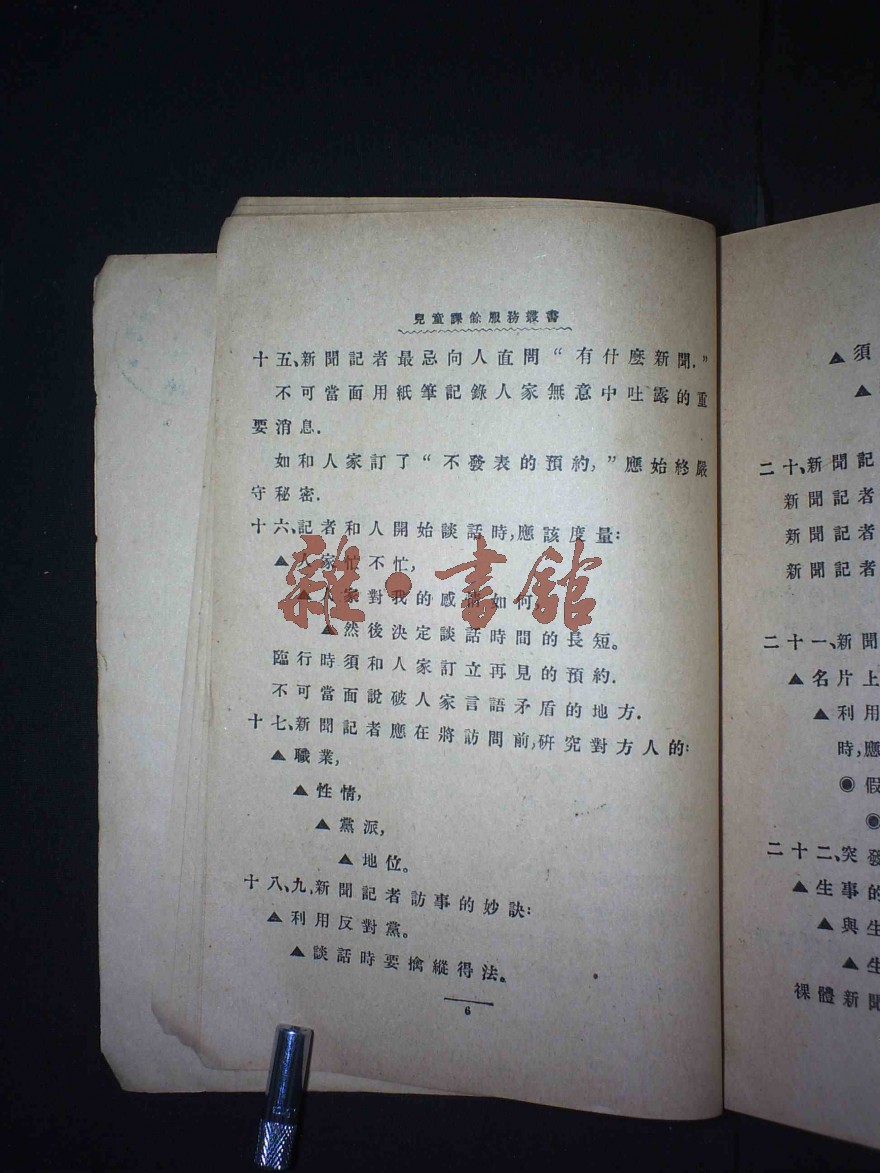 兒童課餘服務叢書
十五、新聞記者最忌向人直問“有什麽新聞.”
不可當面用紙筆記錄人家無意中吐露的重
要消息.
如和人家訂了“不發表的預約,”應始終嚴
守秘密.
十六、記者和人開始談話時,應該度量:
▲人家忙不忙,
▲人家對我的感情如何,
▲然後決定談話時間的長短。
臨行時須和人家訂立再見的預約.
不可當面說破人家言語矛盾的地方.
十七、新聞記者應在將訪問前,硏究對方人的:
▲職業,
▲性情,
▲黨派,
▲地位。
十八、九、新聞記者訪事的妙訣:
▲利用反對黨。
▲談話時要擒縱得法。
6
雜·書館
▲須
▲
二十、新聞記
新聞記者
新聞記者
新聞記者
二十一、新聞
▲名片上
▲利用
時,應
◉假
◉
二十二、突發
▲生事的
▲與生
▲生
裸體新聞